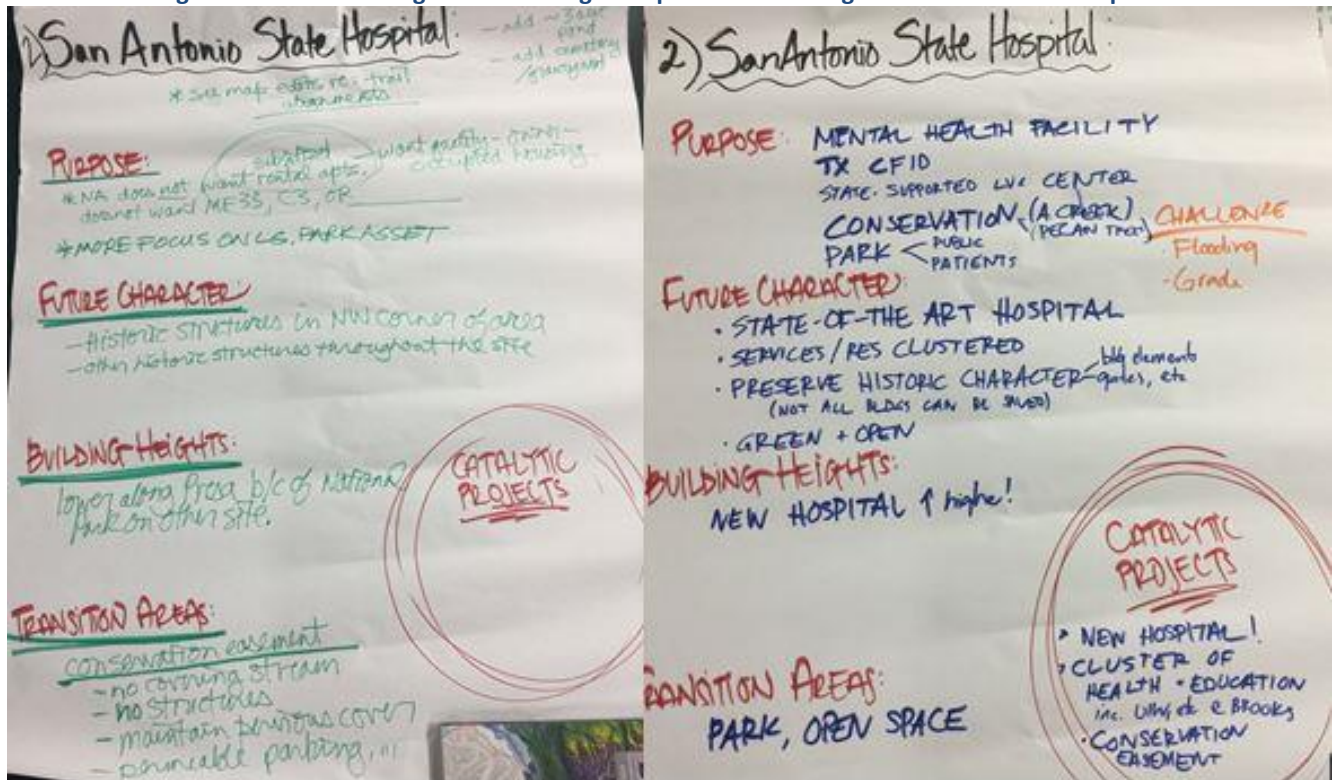 San Antonio State Hospital:
- add
pond
- add cemetery
/graveyard
* see map edits re. trail
PURPOSE:
want quality owner-
occupied housing
* NA does not want rental apts.
does not want MF33, C3, OR
* MORE FOCUS ON LG. PARK ASSET
FUTURE CHARACTER
- Historic structures in NW corner of area
- other historic structures throughout the site
BUILDING HEIGHTS:
lower along Presa b/c of National
Park on other site.
CATALYTIC
PROJECTS
TRANSITION AREAS:
conservation easement
- no covering stream
- no structures
- maintain pervious cover
- permeable parking, ...
2) San Antonio State Hospital:
PURPOSE: MENTAL HEALTH FACILITY
TX CFID
STATE-SUPPORTED LVG CENTER
CONSERVATION (A CREEK)
(PECAN TREES)
PARK < PUBLIC
PATIENTS
CHALLENGE
- Flooding
- Grade
FUTURE CHARACTER:
• STATE-OF-THE ART HOSPITAL
• SERVICES/RES CLUSTERED
• PRESERVE HISTORIC CHARACTER - bldg elements
gates, etc
(NOT ALL BLDGS CAN BE SAVED)
• GREEN + OPEN
BUILDING HEIGHTS:
NEW HOSPITAL ↑ higher!
CATALYTIC
PROJECTS
• NEW HOSPITAL!
• CLUSTER OF
HEALTH + EDUCATION
inc. etc @ BROOKS
• CONSERVATION
EASEMENT
TRANSITION AREAS:
PARK, OPEN SPACE